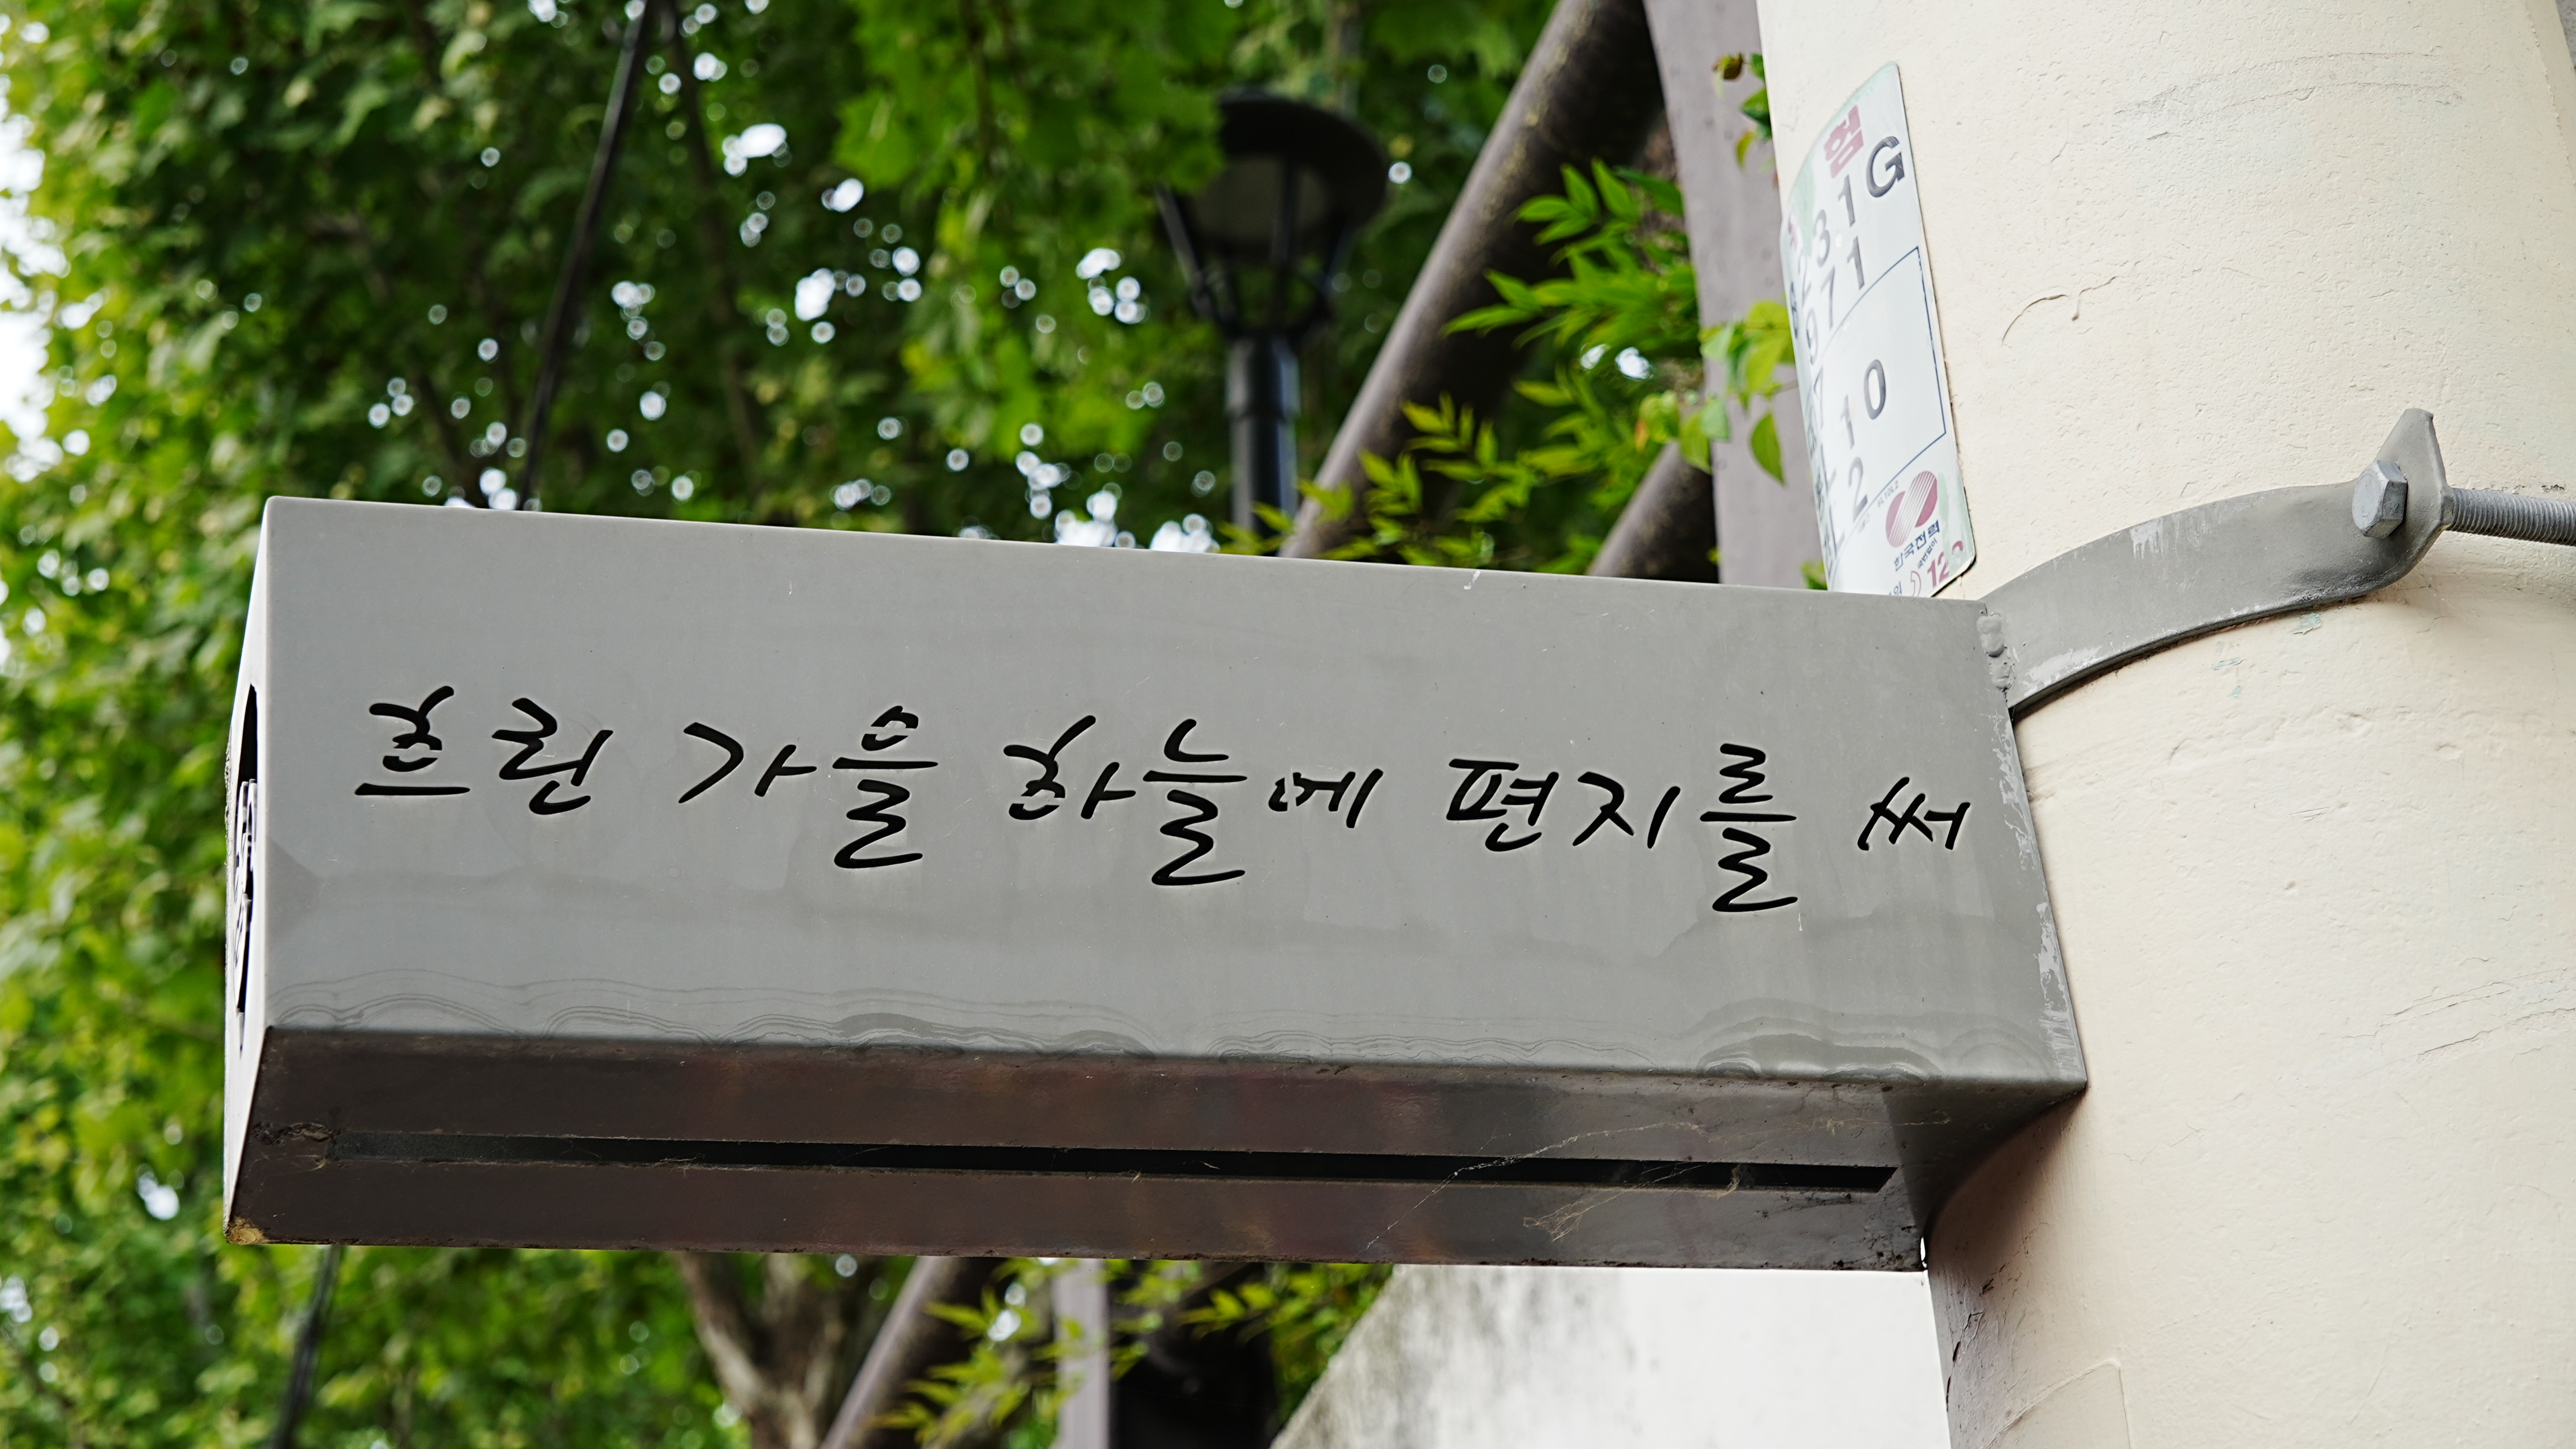 흐린 가을 하늘에 편지를 써
험
31G
71
10
2
한국전력
12